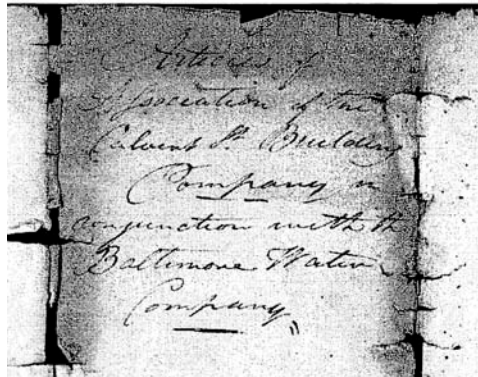 Articles of
Association of the
Calvert St. Building
Company in
conjunction with th
Baltimore Water
Company